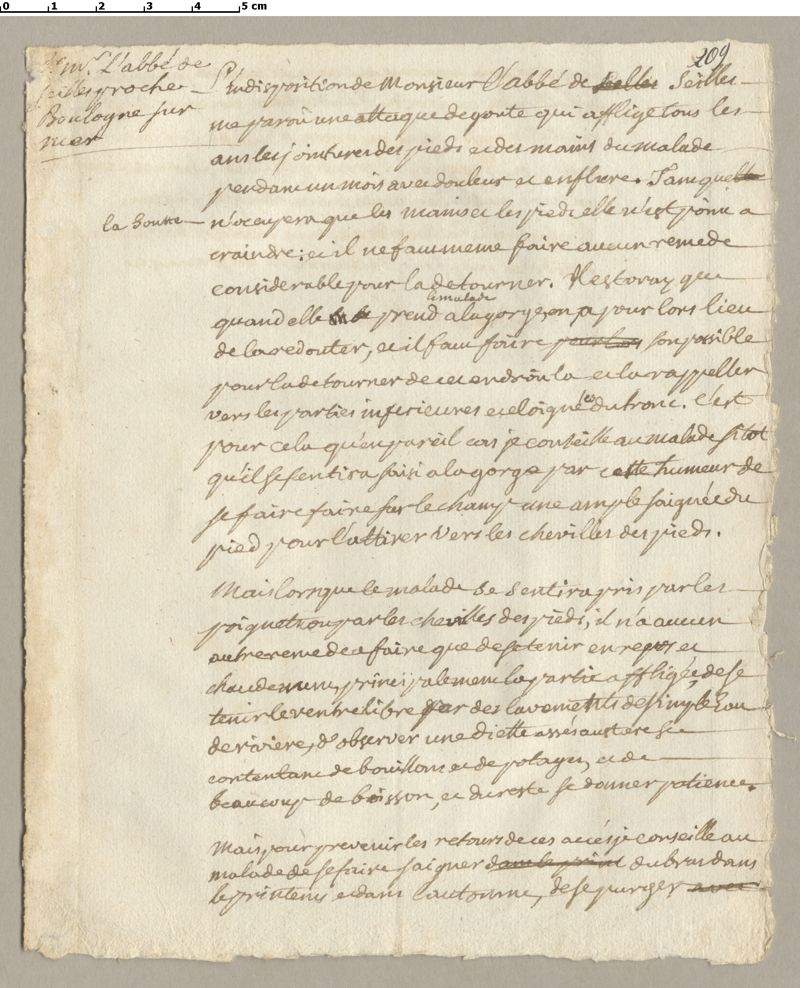 209
Mr. L'abbé de
Seilles proche
Boulogne sur
mer
L'indisposition de Monsieur l'abbé de Seilles
me paroit une attaque de goute qui afflige tous les
ans les jointures des pieds et des mains du malade
pendant un mois avec douleur et enflure. Tant que
la Goutte
n'occupera que les mains et les pieds elle n'est point a
craindre: et il ne faut meme faire aucun remede
considerable pour la detourner. Il est vray que
le malade
quand elle prend a la gorge, on a pour lors lieu
de la redouter, et il faut faire pour lors son possible
pour la detourner de cet endroit la et la rappeller
vers les parties inferieures et eloignées du tronc. C'est
pour cela qu'en pareil cas je conseille au malade sitot
qu'il se sentira saisi a la gorge par cette humeur de
se faire faire sur le champ une ample saignée du
pied pour l'attirer vers les chevilles des pieds.
Mais lorsque le malade se sentira pris par les
poignets ou par les chevilles des pieds, il n'a aucun
autre remede a faire que de se tenir en repos et
chaudement, principalement la partie affligée, de se
tenir le ventre libre par des lavements de simple eau
de riviere, d'observer une diette assés austere se
contentant de bouillons et de potages, et de
beaucoup de boisson, et du reste se donner patience.
Mais pour prevenir les retours de ces accés je conseille au
malade de se faire saigner dans le print du bras dans
le printems et dans l'automne, de se purger avec